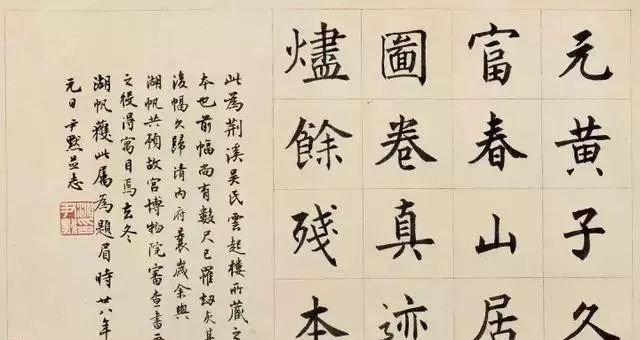 元黄子久
富春山居
圖卷真迹
燼餘殘本
此為荆溪吴氏雲起樓所藏之
本也前幅尚有數尺已罹劫矣其
後幅久歸清内府曩歲余與
湖帆共預故宫博物院審查書画
之役得寓目焉去冬
湖帆獲此属為題眉時廿八年
元日尹默并志